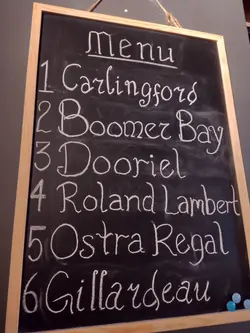 Menu
1 Carlingford
2 Boomer Bay
3 Dooriel
4 Roland Lambert
5 Ostra Regal
6 Gillardeau